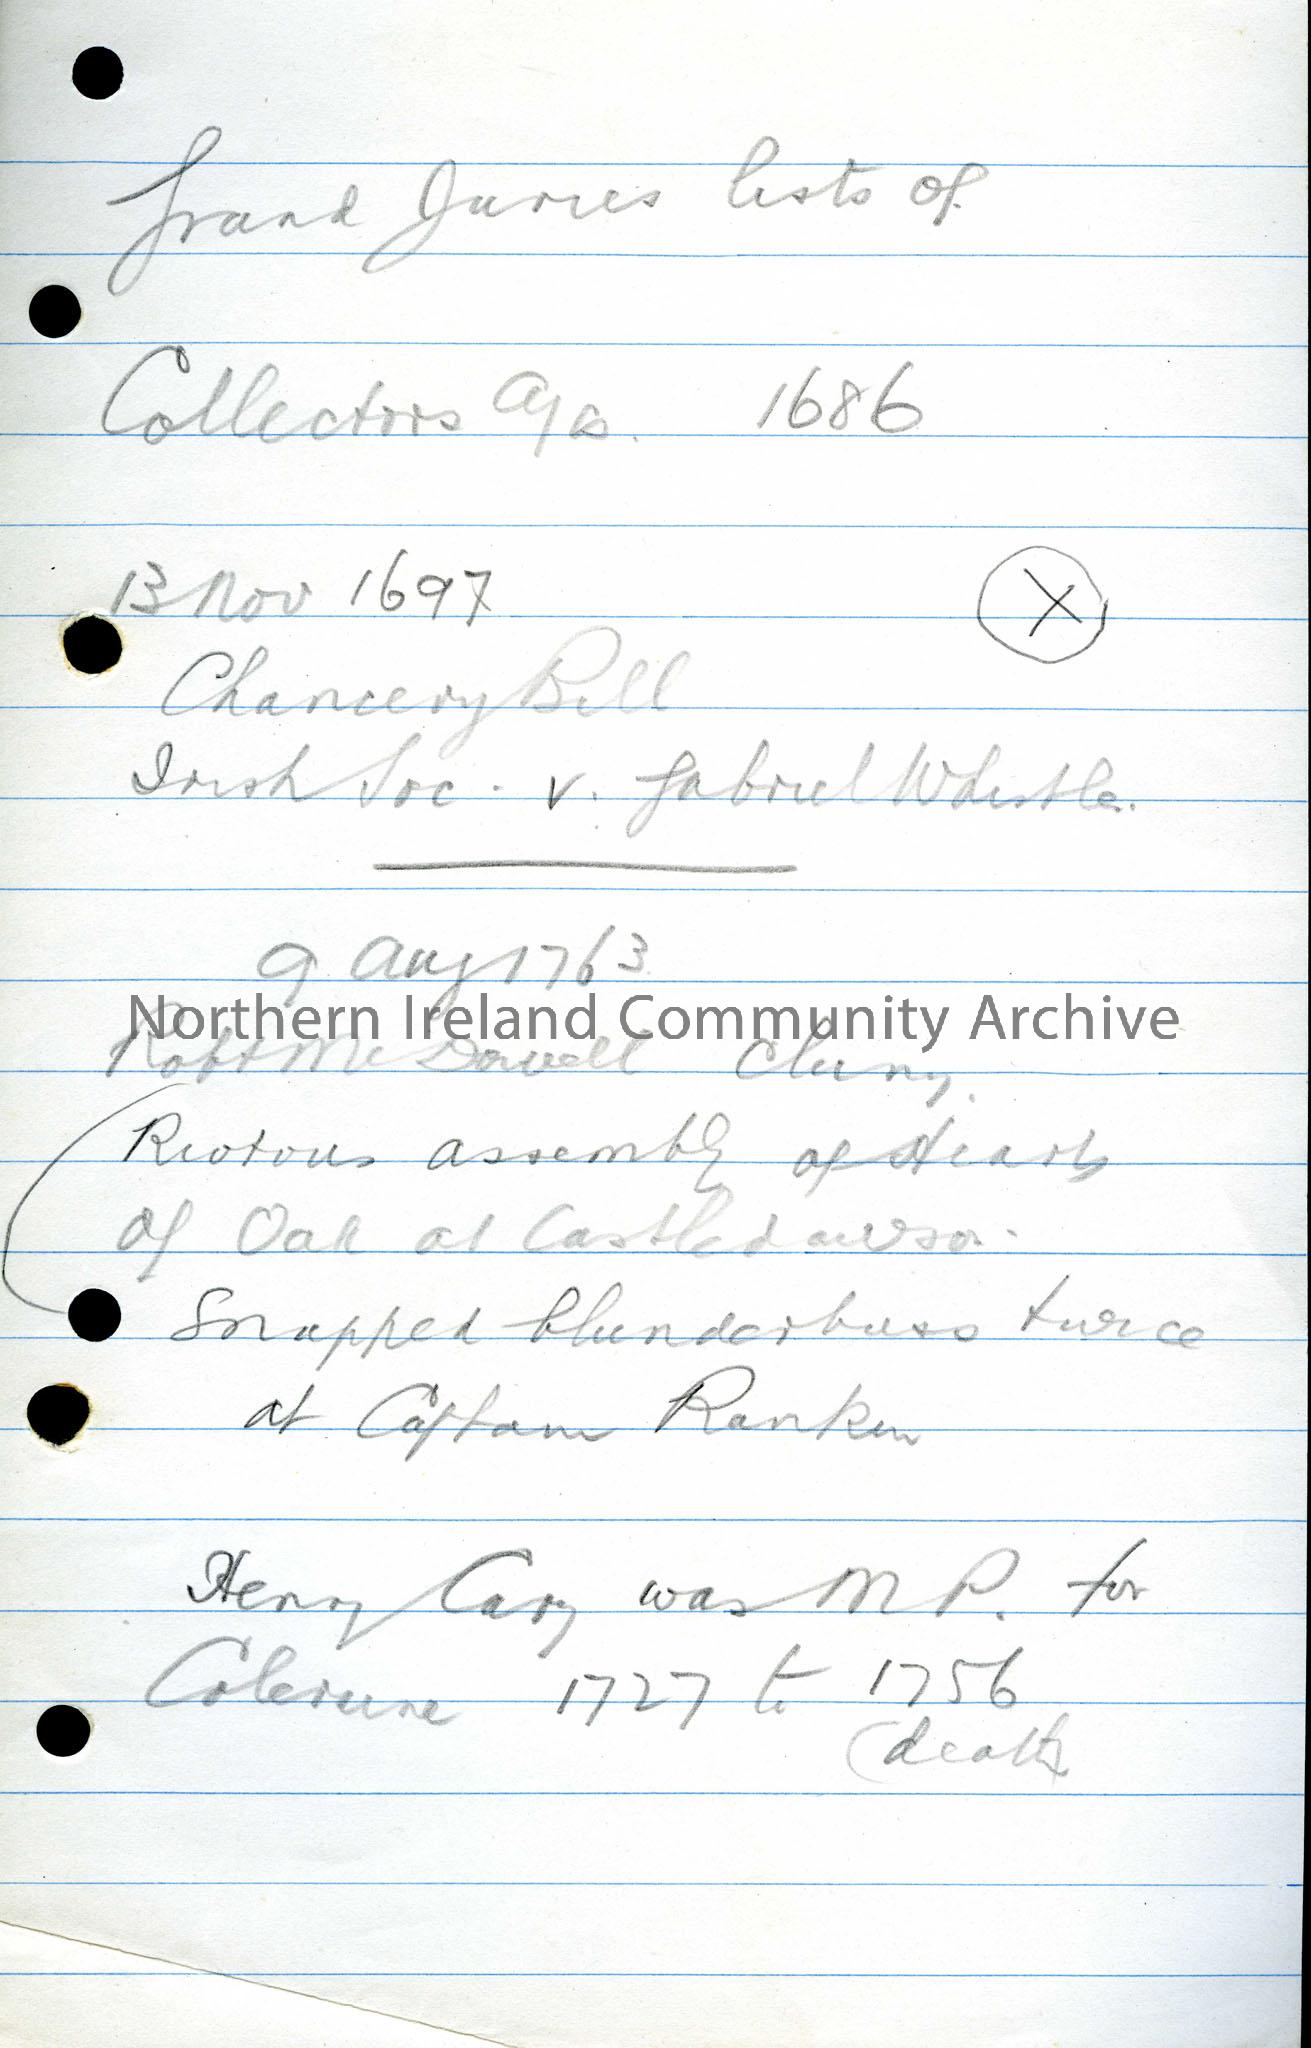 Grand Juries lists of
Collectors a/cs. 1686
13 Nov 1697
X
Chancery Bill
Irish Soc. v. Gabriel Whistler.
9 Aug 1763
Northern Ireland Community Archive
Robt McDowell Cluny.
Riotous assembly of Hearts
of Oak at Castledawson.
Snapped blunderbuss twice
at Captain Ranken
Henry Cary was M P. for
Coleraine 1727 to 1756
(death